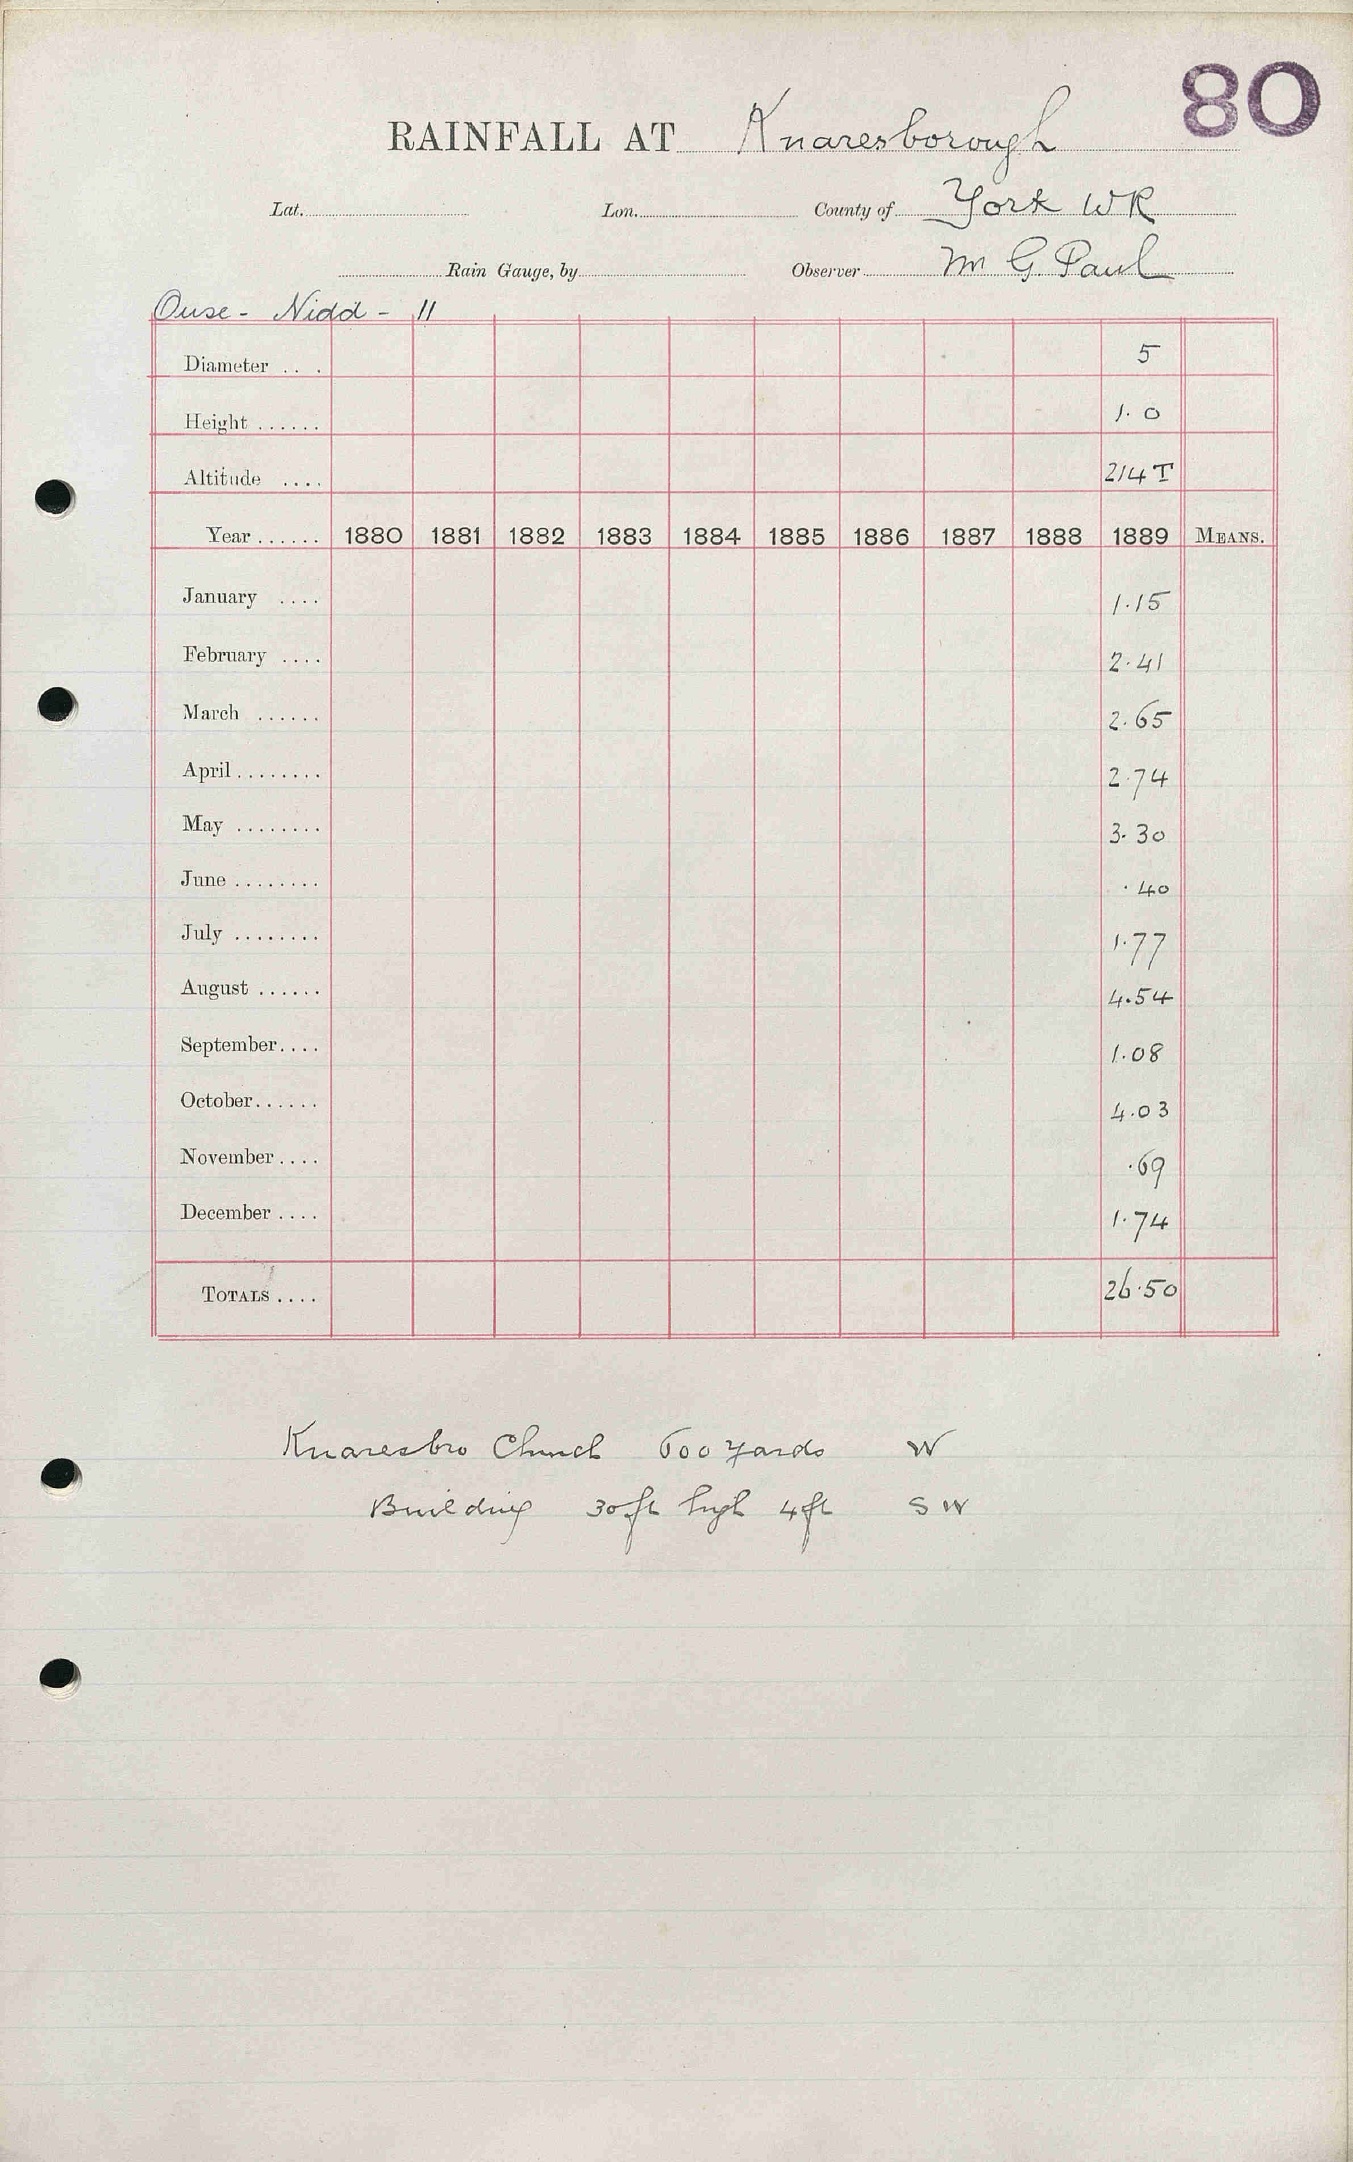 80
RAINFALL AT Knaresborough
Lat. Lon. County of York WR
Rain Gauge, by Observer Mr G. Paul
Ouse - Nidd - 11
Diameter ... 5
Height ...... 1.0
Altitude .... 214 T
Year ...... 1880 1881 1882 1883 1884 1885 1886 1887 1888 1889 MEANS.
January .... 1.15
February .... 2.41
March ...... 2.65
April ........ 2.74
May ........ 3.30
June ........ .40
July ........ 1.77
August ...... 4.54
September .... 1.08
October ...... 4.03
November .... .69
December .... 1.74
TOTALS .... 26.50
Knaresbro Church 600 yards W
Building 30ft high 4ft SW